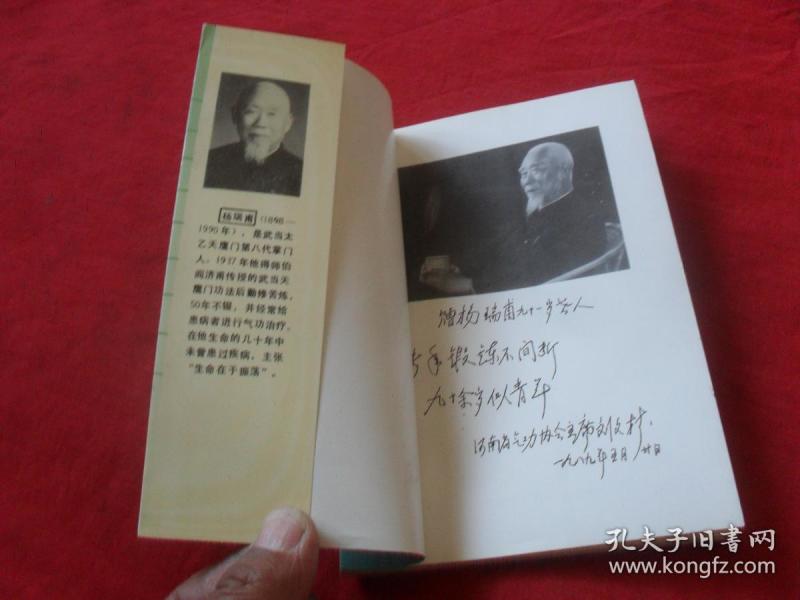 杨瑞甫(1898—
1990年),是武当太
乙天鹰门第八代掌门
人。1937年他得师伯
阎济甫传授的武当天
鹰门功法后勤修苦炼,
50年不辍,并经常给
患病者进行气功治疗。
在他生命的几十年中
未曾患过疾病,主张
“生命在于振荡”。
赠杨瑞甫九十一岁老人
年锻炼不间断
九十余岁似青年
河南省气功协会主席刘文材
一九八九年五月廿日
孔夫子旧书网
www.kongfz.com